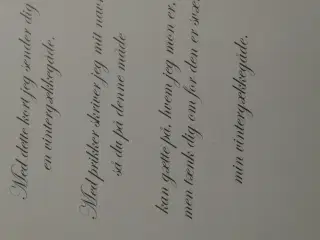 Med dette kort jeg sender dig
en vintergækkegåde.
Med prikker skriver jeg mit nav
så du på denne måde
kan gætte på, hvem jeg mon er,
men tænk dig om for den er svær
min vintergækkegåde.